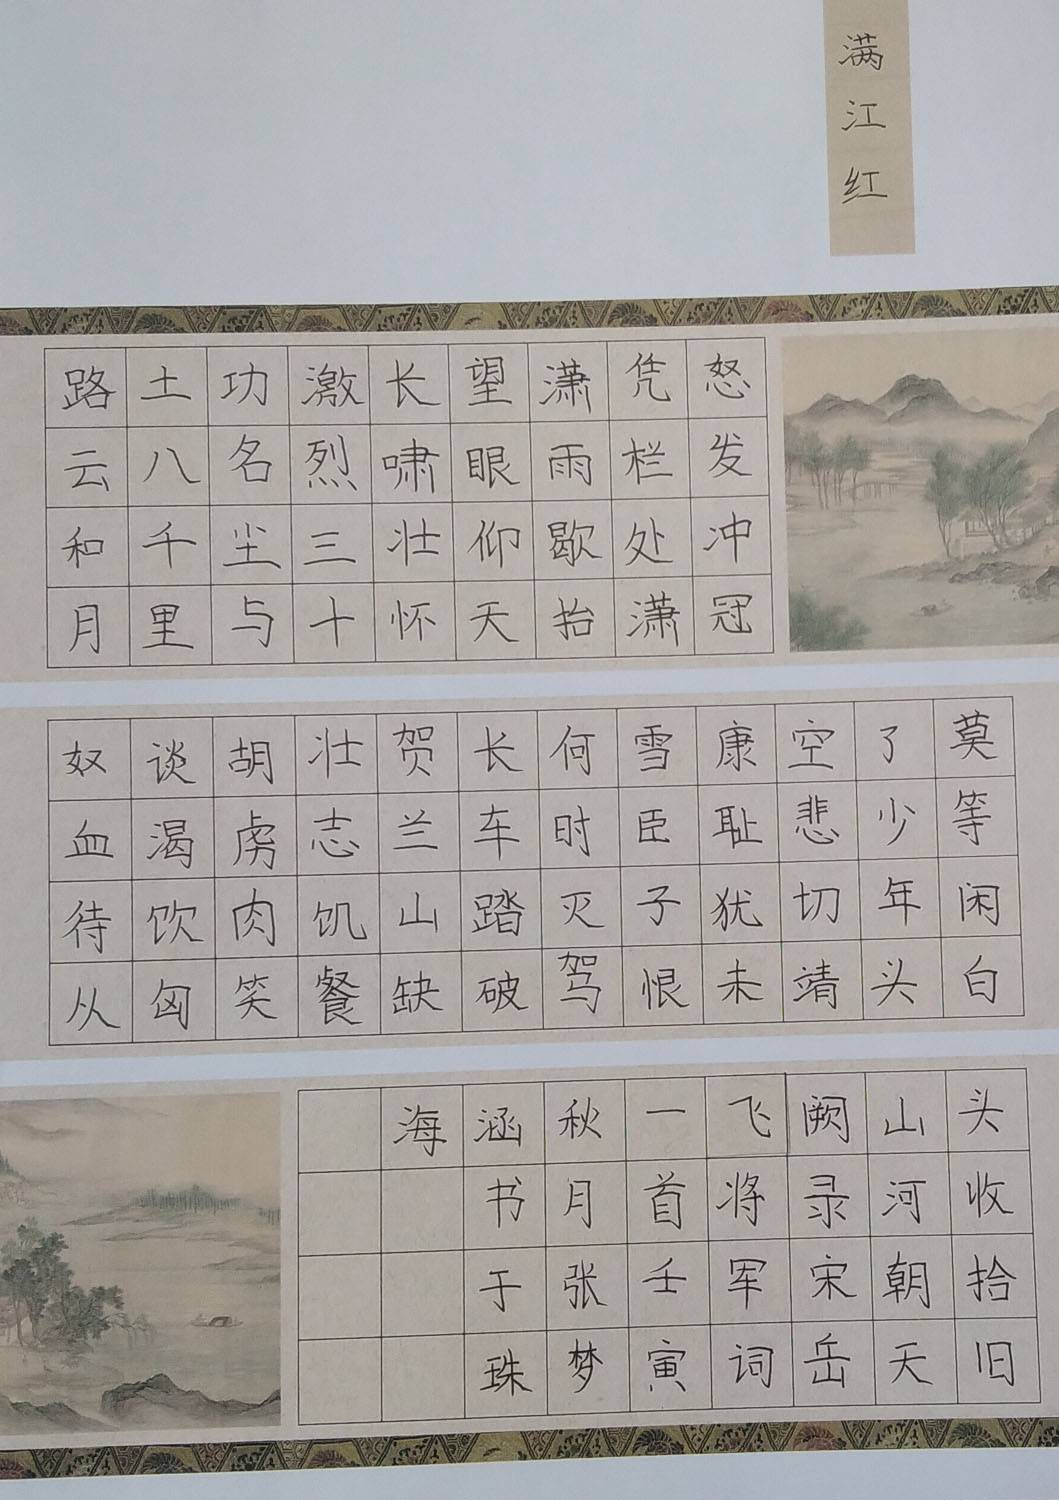 满江红
怒发冲冠
凭栏处潇
潇雨歇抬
望眼仰天
长啸壮怀
激烈三十
功名尘与
土八千里
路云和月
莫等闲白
了少年头
空悲切靖
康耻犹未
雪臣子恨
何时灭驾
长车踏破
贺兰山缺
壮志饥餐
胡虏肉笑
谈渴饮匈
奴血待从
头收拾旧
山河朝天
阙录宋岳
飞将军词
一首壬寅
秋月张梦
涵书于珠
海